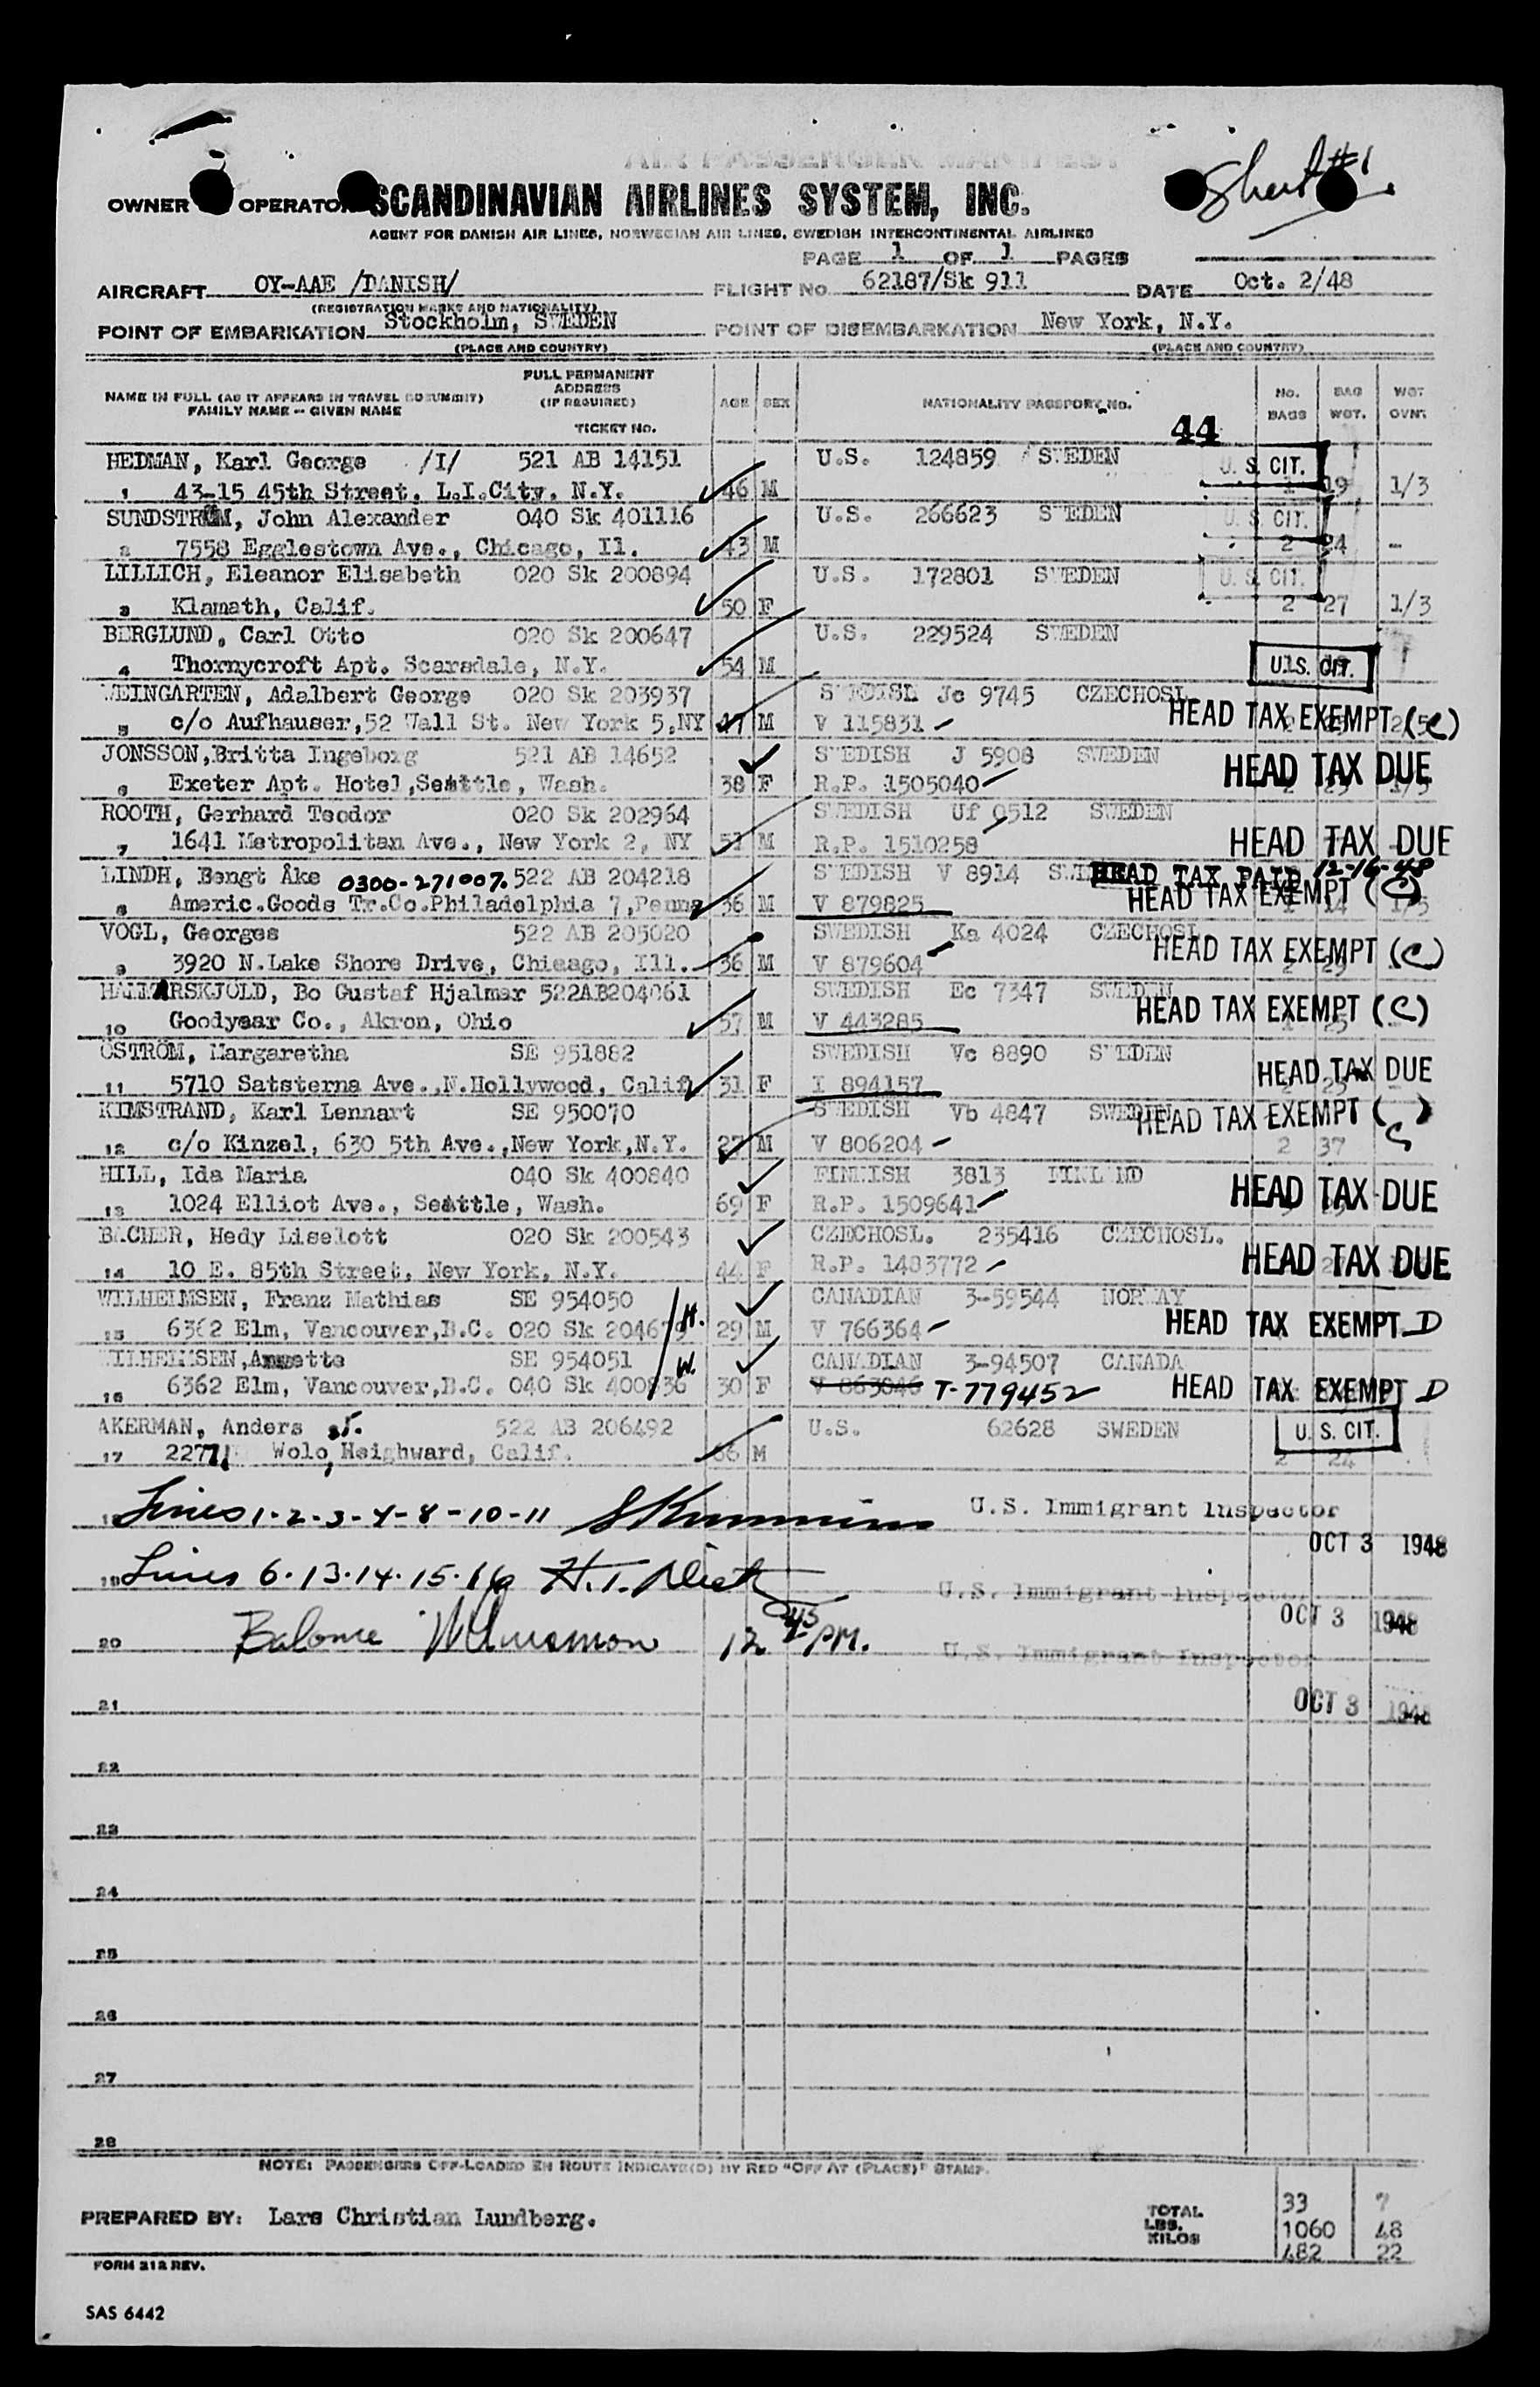 AIR PASSENGER MANIFEST
Sheet #1
OWNER OPERATOR SCANDINAVIAN AIRLINES SYSTEM, INC.
AGENT FOR DANISH AIR LINES, NORWEGIAN AIR LINES, SWEDISH INTERCONTINENTAL AIRLINES
PAGE 1 OF 1 PAGES
AIRCRAFT OY-AAE /DANISH/ FLIGHT NO 62187/Sk 911 DATE Oct. 2/48
(REGISTRATION MARKS AND NATIONALITY)
POINT OF EMBARKATION Stockholm, SWEDEN POINT OF DISEMBARKATION New York, N.Y.
(PLACE AND COUNTRY) (PLACE AND COUNTRY)
NAME IN FULL (AS IT APPEARS IN TRAVEL DOCUMENT) FAMILY NAME -- GIVEN NAME FULL PERMANENT ADDRESS (IF REQUIRED) TICKET No. AGE SEX NATIONALITY PASSPORT No. No. BAGS BAG WGT. WGT OVNT.
44
HEDMAN, Karl George /I/ 521 AB 14151 U.S. 124859 SWEDEN U. S. CIT.
1 43-15 45th Street, L.I.City, N.Y. 46 M 1 19 1/3
SUNDSTRÖM, John Alexander 040 Sk 401116 U.S. 266623 SWEDEN U. S. CIT.
2 7558 Egglestown Ave., Chicago, Il. 43 M 2 24 -
LILLICH, Eleanor Elisabeth 020 Sk 200894 U.S. 172801 SWEDEN U. S. CIT.
3 Klamath, Calif. 50 F 2 27 1/3
BERGLUND, Carl Otto 020 Sk 200647 U.S. 229524 SWEDEN
4 Thornycroft Apt. Scarsdale, N.Y. 54 M U.S. CIT.
WEINGARTEN, Adalbert George 020 Sk 203937 SWEDISH Jc 9745 CZECHOSL.
5 c/o Aufhauser,52 Wall St. New York 5,NY 47 M V 115831 HEAD TAX EXEMPT (C)
JONSSON,Britta Ingeborg 521 AB 14652 SWEDISH J 5908 SWEDEN
6 Exeter Apt. Hotel,Seattle, Wash. 38 F R.P. 1505040 HEAD TAX DUE
ROOTH, Gerhard Teodor 020 Sk 202964 SWEDISH Uf 0512 SWEDEN
7 1641 Metropolitan Ave., New York 2, NY 51 M R.P. 1510258 HEAD TAX DUE
LINDH, Bengt Åke 0300-271007. 522 AB 204218 SWEDISH V 8914 HEAD TAX PAID 12-16-48
8 Americ.Goods Tr.Co.Philadelphia 7,Penna 36 M V 879825 HEAD TAX EXEMPT (C)
VOGL, Georges 522 AB 205020 SWEDISH Ka 4024 CZECHOSL.
9 3920 N.Lake Shore Drive, Chicago, Ill. 36 M V 879604 HEAD TAX EXEMPT (C)
HAMMARSKJOLD, Bo Gustaf Hjalmar 522AB204061 SWEDISH Ec 7347 SWEDEN
10 Goodyear Co., Akron, Ohio 57 M V 443285 HEAD TAX EXEMPT (C)
ÖSTRÖM, Margaretha SE 951882 SWEDISH Vc 8890 SWEDEN
11 5710 Satsterna Ave.,N.Hollywood, Calif 31 F I 894157 HEAD TAX DUE
KIMSTRAND, Karl Lennart SE 950070 SWEDISH Vb 4847 SWEDEN HEAD TAX EXEMPT ( )
12 c/o Kinzel, 630 5th Ave.,New York,N.Y. 27 M V 806204 2 37 C
HILL, Ida Maria 040 Sk 400840 FINNISH 3813 FINLAND
13 1024 Elliot Ave., Seattle, Wash. 69 F R.P. 1509641 HEAD TAX DUE
BACHER, Hedy Liselott 020 Sk 200543 CZECHOSL. 235416 CZECHOSL.
14 10 E. 85th Street, New York, N.Y. 44 F R.P. 1483772 HEAD TAX DUE
WILHELMSEN, Franz Mathias SE 954050 H. CANADIAN 3-59544 NORWAY
15 6362 Elm, Vancouver,B.C. 020 Sk 204679 29 M V 766364 HEAD TAX EXEMPT D
WILHELMSEN,Annette SE 954051 W. CANADIAN 3-94507 CANADA
16 6362 Elm, Vancouver,B.C. 040 Sk 400836 30 F V 863046 T-779452 HEAD TAX EXEMPT D
AKERMAN, Anders 522 AB 206492 U.S. 62628 SWEDEN U. S. CIT.
17 22771 Wolo, Heighward, Calif. 66 M 2 24
18 Lines 1-2-3-4-8-10-11 U.S. Immigrant Inspector
OCT 3 1948
19 Lines 6.13.14.15.16 U.S. Immigrant Inspector
OCT 3 1948
20 Balance 12 45 PM. U.S. Immigrant Inspector
OCT 3 1948
21
22
23
24
25
26
27
28
NOTE: PASSENGERS OFF-LOADED EN ROUTE INDICATE(D) BY RED "OFF AT (PLACE)" STAMP.
PREPARED BY: Lars Christian Lundberg.
TOTAL 33 7
LBS. 1060 48
KILOS 482 22
FORM 212 REV.
SAS 6442